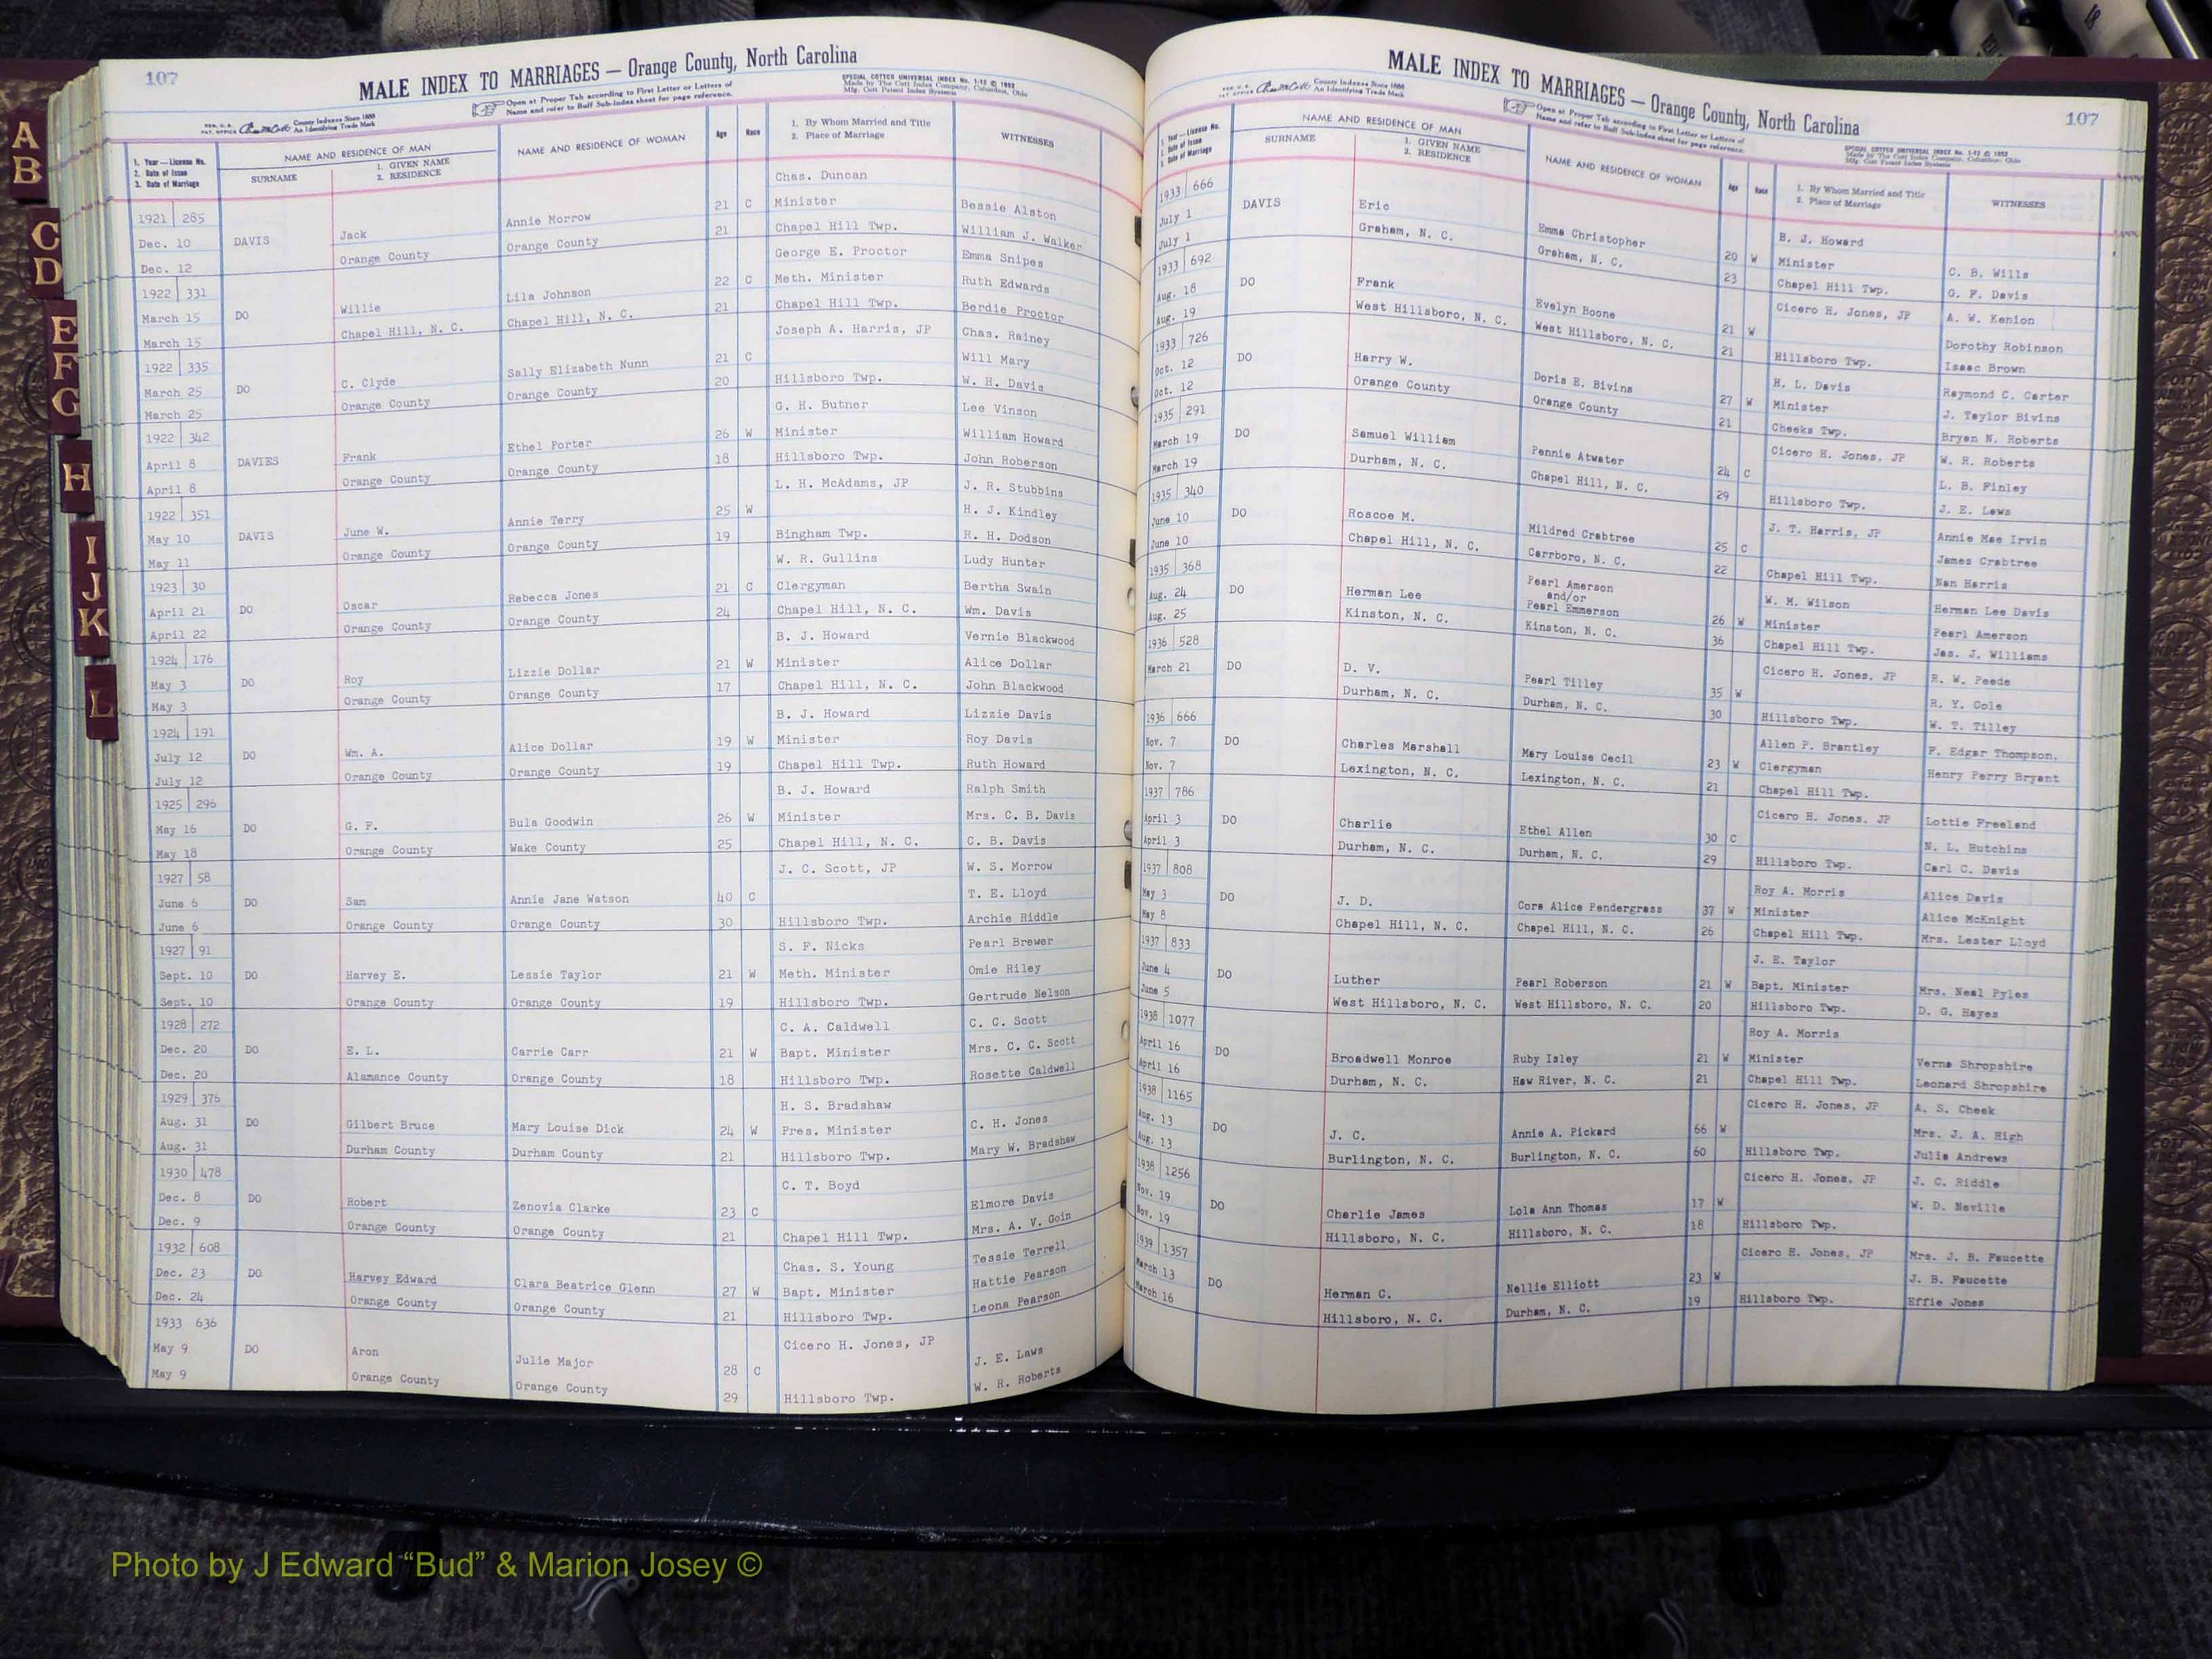 107
MALE INDEX TO MARRIAGES — Orange County, North Carolina
Open at Proper Tab according to First Letter or Letters of
Name and refer to Buff Sub-index sheet for page reference.
SPECIAL COTTCO UNIVERSAL INDEX No. 1-12 © 1953
Made by The Cott Index Company, Columbus, Ohio
Mfg. Cott Patent Index Systems
REG. U. S. PAT. OFFICE
County Indexes Since 1888
An Identifying Trade Mark
1. Year — License No.
2. Date of Issue
3. Date of Marriage
NAME AND RESIDENCE OF MAN
SURNAME
1. GIVEN NAME
2. RESIDENCE
NAME AND RESIDENCE OF WOMAN
Age
Race
1. By Whom Married and Title
2. Place of Marriage
WITNESSES
Chas. Duncan
1921 285 Annie Morrow 21 C Minister Bessie Alston
Dec. 10 DAVIS Jack Orange County 21 Chapel Hill Twp. William J. Walker
Dec. 12 Orange County George E. Proctor Emma Snipes
1922 331 Lila Johnson 22 C Meth. Minister Ruth Edwards
March 15 DO Willie Chapel Hill, N. C. 21 Chapel Hill Twp. Berdie Proctor
March 15 Chapel Hill, N. C. Joseph A. Harris, JP Chas. Rainey
1922 335 Sally Elizabeth Nunn 21 C Will Mary
March 25 DO C. Clyde Orange County 20 Hillsboro Twp. W. H. Davis
March 25 Orange County G. H. Butner Lee Vinson
1922 342 Ethel Porter 26 W Minister William Howard
April 8 DAVIES Frank Orange County 18 Hillsboro Twp. John Roberson
April 8 Orange County L. H. McAdams, JP J. R. Stubbins
1922 351 Annie Terry 25 W H. J. Kindley
May 10 DAVIS June W. Orange County 19 Bingham Twp. R. H. Dodson
May 11 Orange County W. R. Gullins Ludy Hunter
1923 30 Rebecca Jones 21 C Clergyman Bertha Swain
April 21 DO Oscar Orange County 24 Chapel Hill, N. C. Wm. Davis
April 22 Orange County B. J. Howard Vernie Blackwood
1924 176 Lizzie Dollar 21 W Minister Alice Dollar
May 3 DO Roy Orange County 17 Chapel Hill, N. C. John Blackwood
May 3 Orange County B. J. Howard Lizzie Davis
1924 191 Alice Dollar 19 W Minister Roy Davis
July 12 DO Wm. A. Orange County 19 Chapel Hill Twp. Ruth Howard
July 12 Orange County B. J. Howard Ralph Smith
1925 296 Bula Goodwin 26 W Minister Mrs. C. B. Davis
May 16 DO G. F. Wake County 25 Chapel Hill, N. C. C. B. Davis
May 18 Orange County J. C. Scott, JP W. S. Morrow
1927 58 Annie Jane Watson 40 C T. E. Lloyd
June 6 DO Sam Orange County 30 Hillsboro Twp. Archie Riddle
June 6 Orange County S. F. Nicks Pearl Brewer
1927 91
Sept. 10 DO Harvey E. Lessie Taylor 21 W Meth. Minister Omie Riley
Sept. 10 Orange County Orange County 19 Hillsboro Twp. Gertrude Nelson
1928 272 C. A. Caldwell C. C. Scott
Dec. 20 DO E. L. Carrie Carr 21 W Bapt. Minister Mrs. C. C. Scott
Dec. 20 Alamance County Orange County 18 Hillsboro Twp. Rosette Caldwell
1929 376 H. S. Bradshaw
Aug. 31 DO Gilbert Bruce Mary Louise Dick 24 W Pres. Minister C. H. Jones
Aug. 31 Durham County Durham County 21 Hillsboro Twp. Mary W. Bradshaw
1930 478 C. T. Boyd
Dec. 8 DO Robert Zenovia Clarke 23 C Elmore Davis
Dec. 9 Orange County Orange County 21 Chapel Hill Twp. Mrs. A. V. Goin
1932 608 Chas. S. Young Tessie Terrell
Dec. 23 DO Harvey Edward Clara Beatrice Glenn 27 W Bapt. Minister Hattie Pearson
Dec. 24 Orange County Orange County 21 Hillsboro Twp. Leona Pearson
1933 636 Cicero H. Jones, JP
May 9 DO Aron Julie Major 28 C J. E. Laws
May 9 Orange County Orange County 29 Hillsboro Twp. W. R. Roberts
MALE INDEX TO MARRIAGES — Orange County, North Carolina
107
County Indexes Since 1888
An Identifying Trade Mark
Open at Proper Tab according to First Letter or Letters of
Name and refer to Buff Sub-index sheet for page reference.
SPECIAL COTTCO UNIVERSAL INDEX No. 1-12 © 1953
Made by The Cott Index Company, Columbus, Ohio
Mfg. Cott Patent Index Systems
1. Year — License No.
2. Date of Issue
3. Date of Marriage
NAME AND RESIDENCE OF MAN
SURNAME
1. GIVEN NAME
2. RESIDENCE
NAME AND RESIDENCE OF WOMAN
Age
Race
1. By Whom Married and Title
2. Place of Marriage
WITNESSES
1933 666 B. J. Howard
July 1 DAVIS Eric Emma Christopher 20 W Minister C. B. Wills
July 1 Graham, N. C. Graham, N. C. 23 Chapel Hill Twp. G. F. Davis
1933 692 Cicero H. Jones, JP A. W. Kenion
Aug. 18 DO Frank Evelyn Boone 21 W Dorothy Robinson
Aug. 19 West Hillsboro, N. C. West Hillsboro, N. C. 21 Hillsboro Twp. Isaac Brown
1933 726 H. L. Davis Raymond C. Carter
Oct. 12 DO Harry W. Doris E. Bivins 27 W Minister J. Taylor Bivins
Oct. 12 Orange County Orange County 21 Cheeks Twp. Bryan N. Roberts
1935 291 Cicero H. Jones, JP W. R. Roberts
March 19 DO Samuel William Pennie Atwater 24 C L. B. Finley
March 19 Durham, N. C. Chapel Hill, N. C. 29 Hillsboro Twp. J. E. Laws
1935 340 J. T. Harris, JP Annie Mae Irvin
June 10 DO Roscoe M. Mildred Crabtree 25 C James Crabtree
June 10 Chapel Hill, N. C. Carrboro, N. C. 22 Chapel Hill Twp. Nan Harris
1935 368 Pearl Amerson and/or W. M. Wilson Herman Lee Davis
Aug. 24 DO Herman Lee Pearl Emmerson 26 W Minister Pearl Amerson
Aug. 25 Kinston, N. C. Kinston, N. C. 36 Chapel Hill Twp. Jas. J. Williams
1936 528 Cicero H. Jones, JP R. W. Peede
March 21 DO D. V. Pearl Tilley 35 W R. Y. Cole
Durham, N. C. Durham, N. C. 30 Hillsboro Twp. W. T. Tilley
1936 666 Allen P. Brantley F. Edgar Thompson.
Nov. 7 DO Charles Marshall Mary Louise Cecil 23 W Clergyman Henry Perry Bryant
Nov. 7 Lexington, N. C. Lexington, N. C. 21 Chapel Hill Twp.
1937 786 Cicero H. Jones, JP Lottie Freeland
April 3 DO Charlie Ethel Allen 30 C N. L. Hutchins
April 3 Durham, N. C. Durham, N. C. 29 Hillsboro Twp. Carl C. Davis
1937 808 Roy A. Morris Alice Davis
May 3 DO J. D. Cora Alice Pendergrass 37 W Minister Alice McKnight
May 8 Chapel Hill, N. C. Chapel Hill, N. C. 26 Chapel Hill Twp. Mrs. Lester Lloyd
1937 833 J. E. Taylor
June 4 DO Luther Pearl Roberson 21 W Bapt. Minister Mrs. Neal Pyles
June 5 West Hillsboro, N. C. West Hillsboro, N. C. 20 Hillsboro Twp. D. G. Hayes
1938 1077 Roy A. Morris
April 16 DO Broadwell Monroe Ruby Isley 21 W Minister Verna Shropshire
April 16 Durham, N. C. Haw River, N. C. 21 Chapel Hill Twp. Leonard Shropshire
1938 1165 Cicero H. Jones, JP A. S. Cheek
Aug. 13 DO J. C. Annie A. Pickard 66 W Mrs. J. A. High
Aug. 13 Burlington, N. C. Burlington, N. C. 60 Hillsboro Twp. Julia Andrews
1938 1256 Cicero H. Jones, JP J. C. Riddle
Nov. 19 DO Charlie James Lola Ann Thomas 17 W W. D. Neville
Nov. 19 Hillsboro, N. C. Hillsboro, N. C. 18 Hillsboro Twp.
1939 1357 Cicero H. Jones, JP Mrs. J. B. Faucette
March 13 DO Herman C. Nellie Elliott 23 W J. B. Faucette
March 16 Hillsboro, N. C. Durham, N. C. 19 Hillsboro Twp. Effie Jones
A
B
C
D
E
F
G
H
I
J
K
L
18
Photo by J Edward “Bud” & Marion Josey ©